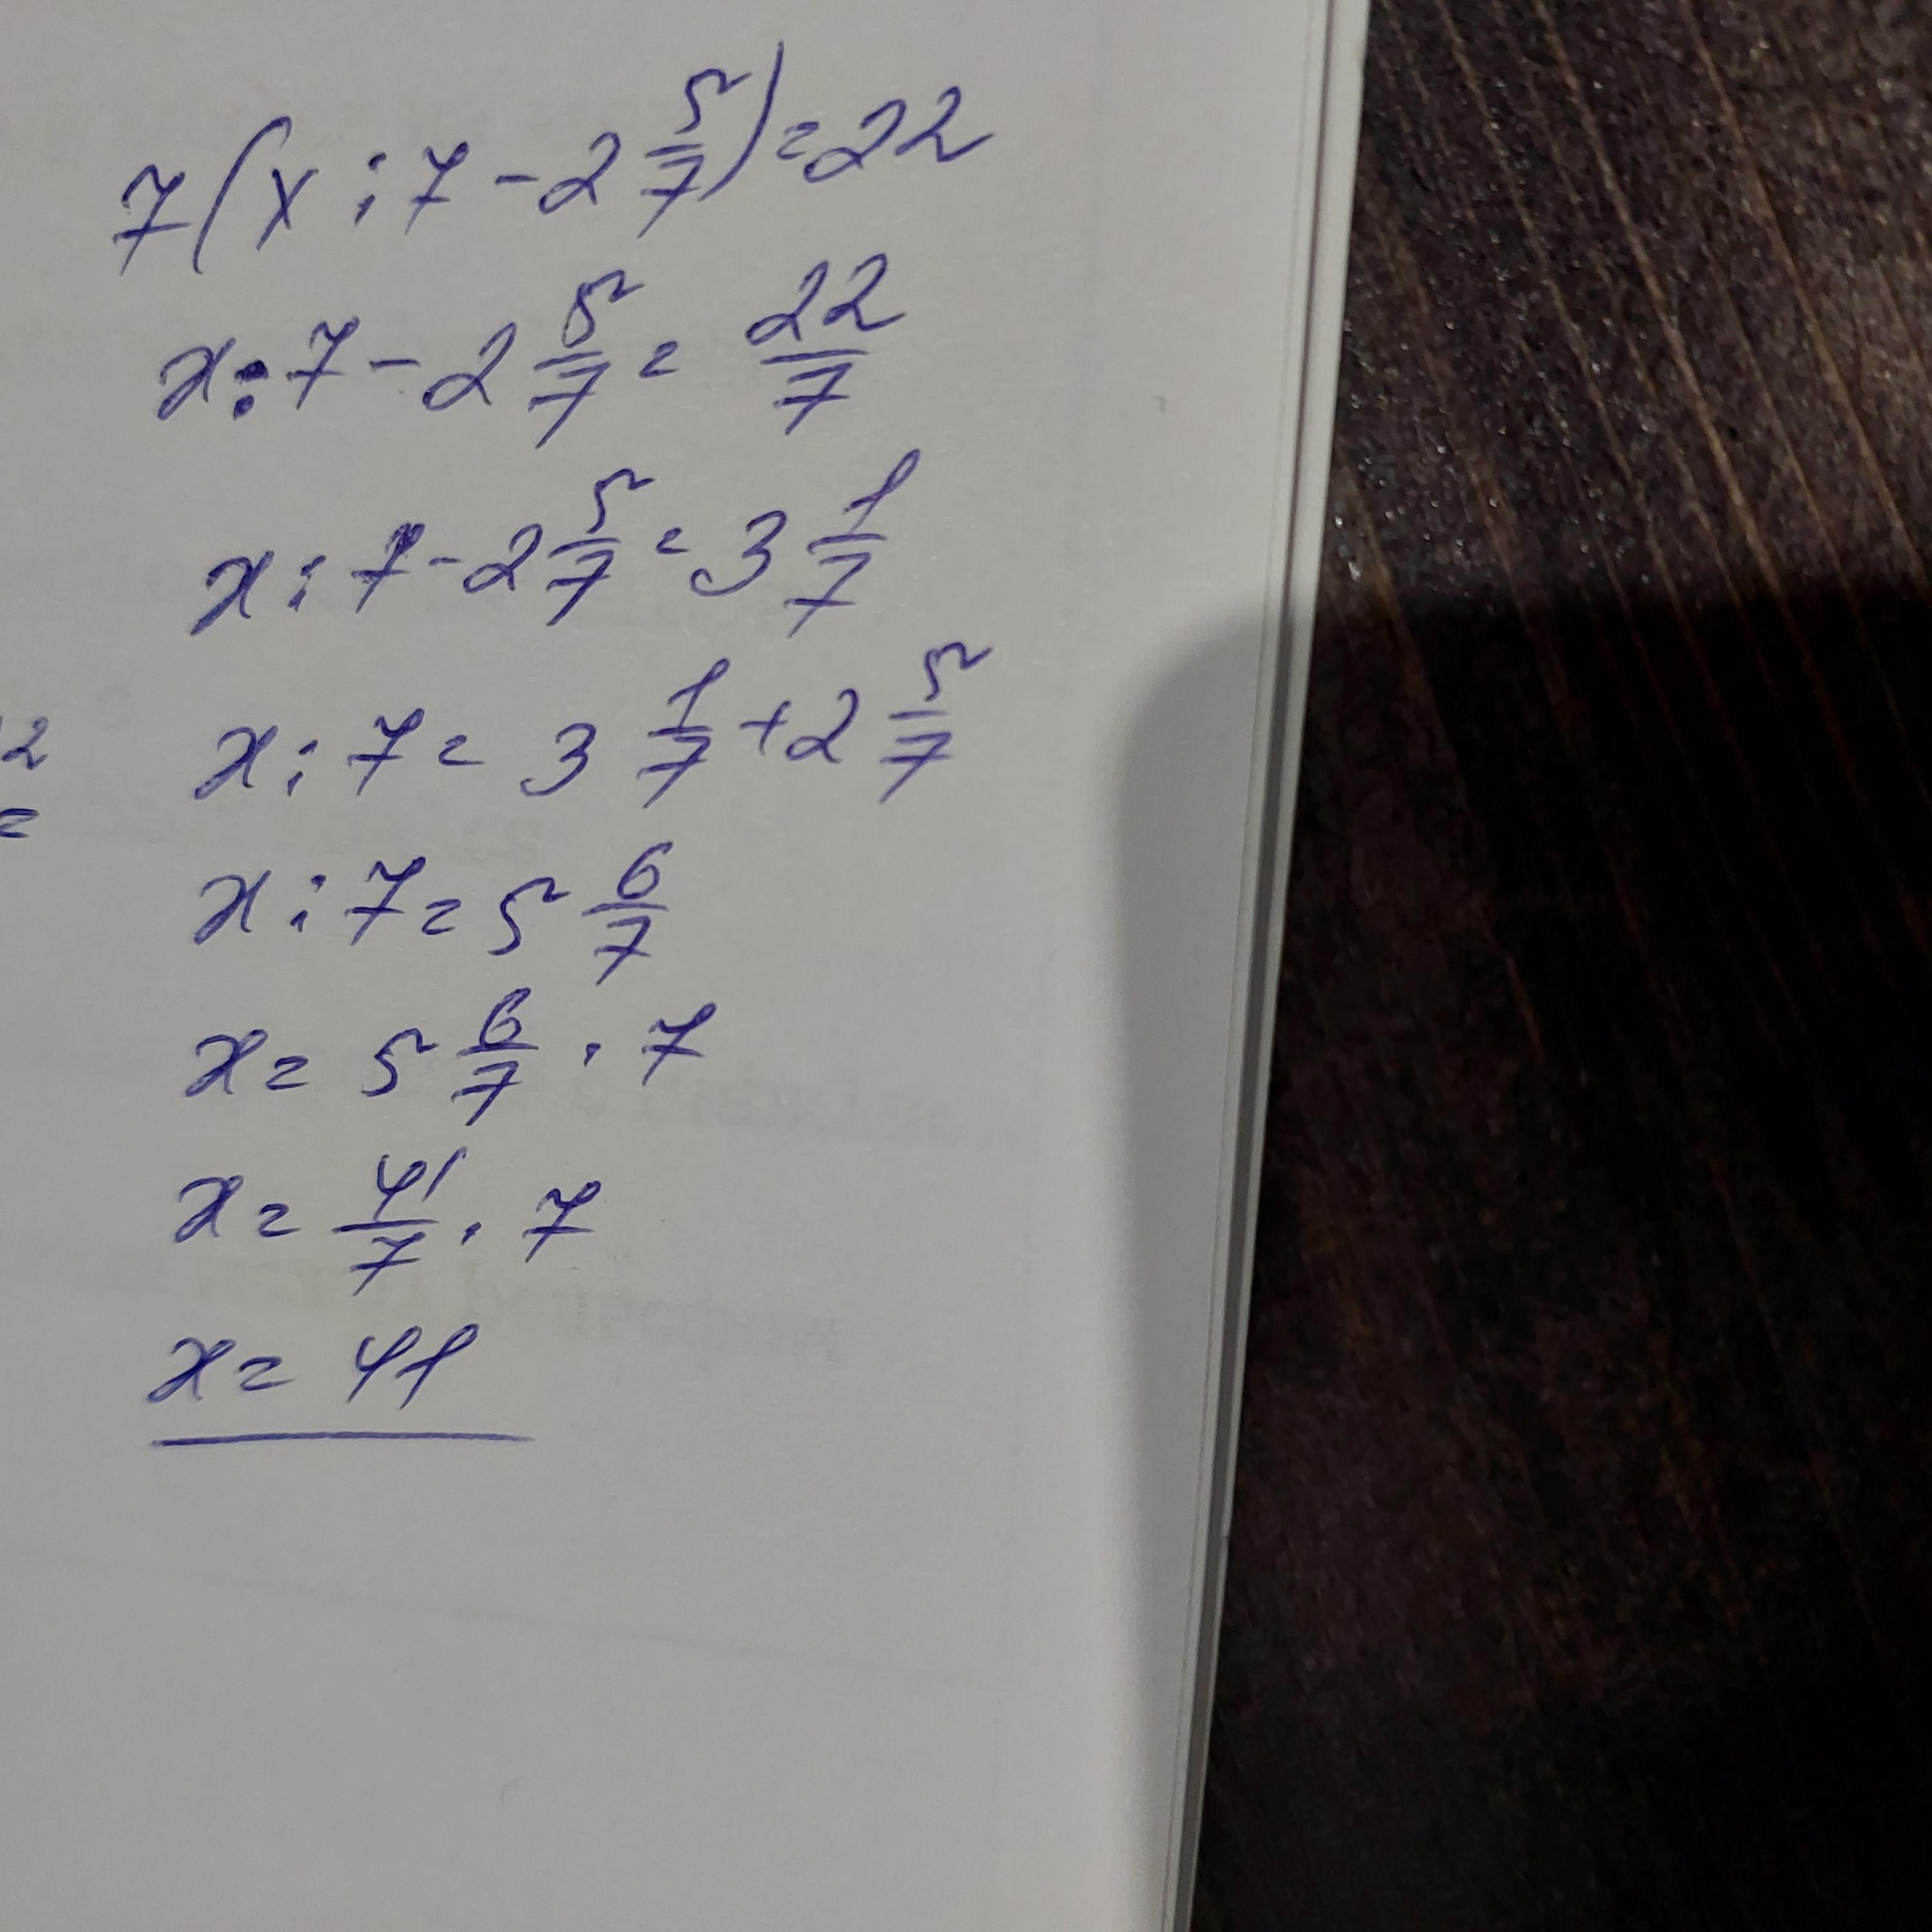 7(x : 7 - 2 5/7) = 22
x : 7 - 2 5/7 = 22/7
x : 7 - 2 5/7 = 3 1/7
2
=
x : 7 = 3 1/7 + 2 5/7
x : 7 = 5 6/7
x = 5 6/7 · 7
x = 41/7 · 7
x = 41